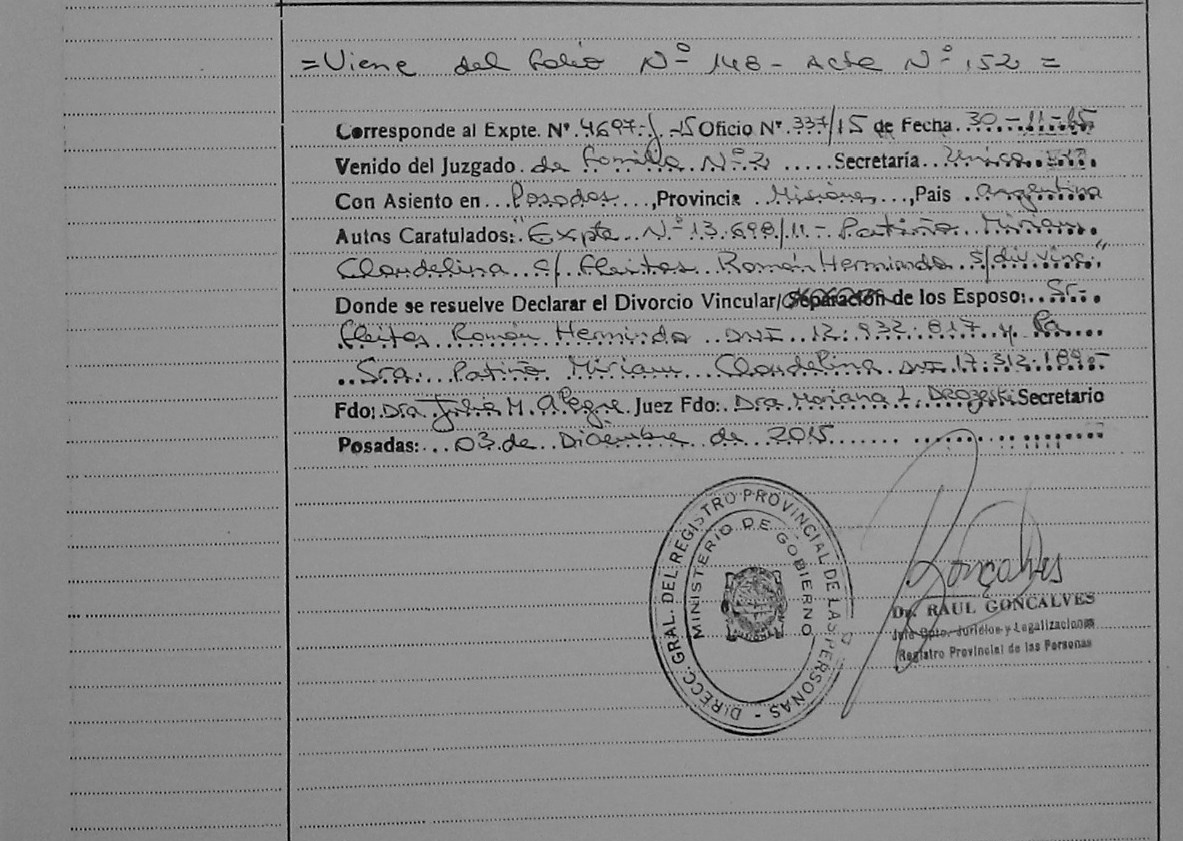 = Viene del folio Nº 148 - Acta Nº 152 =
Corresponde al Expte. Nº 4697-J-15 Oficio Nº 337/15 de Fecha 30-11-15
Venido del Juzgado de Familia Nº 2 Secretaría Única
Con Asiento en Posadas, Provincia Misiones, Pais Argentina
Autos Caratulados: "Expte. Nº 13.698/11.- Patiño Miriam
Claudelina c/ Fleitas Román Hermindo s/div. vinc."
Donde se resuelve Declarar el Divorcio Vincular/Separación de los Esposo: Sr.
Fleitas Román Hermindo DNI 12.932.817 y la
Sra. Patiño Miriam Claudelina DNI 17.312.189.-
Fdo: Dra. Julia M. Alegre Juez Fdo: Dra. Mariana L. Secretario
Posadas: 03 de Diciembre de 2015
DIRECC. GRAL. DEL REGISTRO PROVINCIAL DE LAS PERSONAS -
MINISTERIO DE GOBIERNO
Dr. RAUL GONCALVES
Jefe Dpto. Jurídico y Legalizaciones
Registro Provincial de las Personas